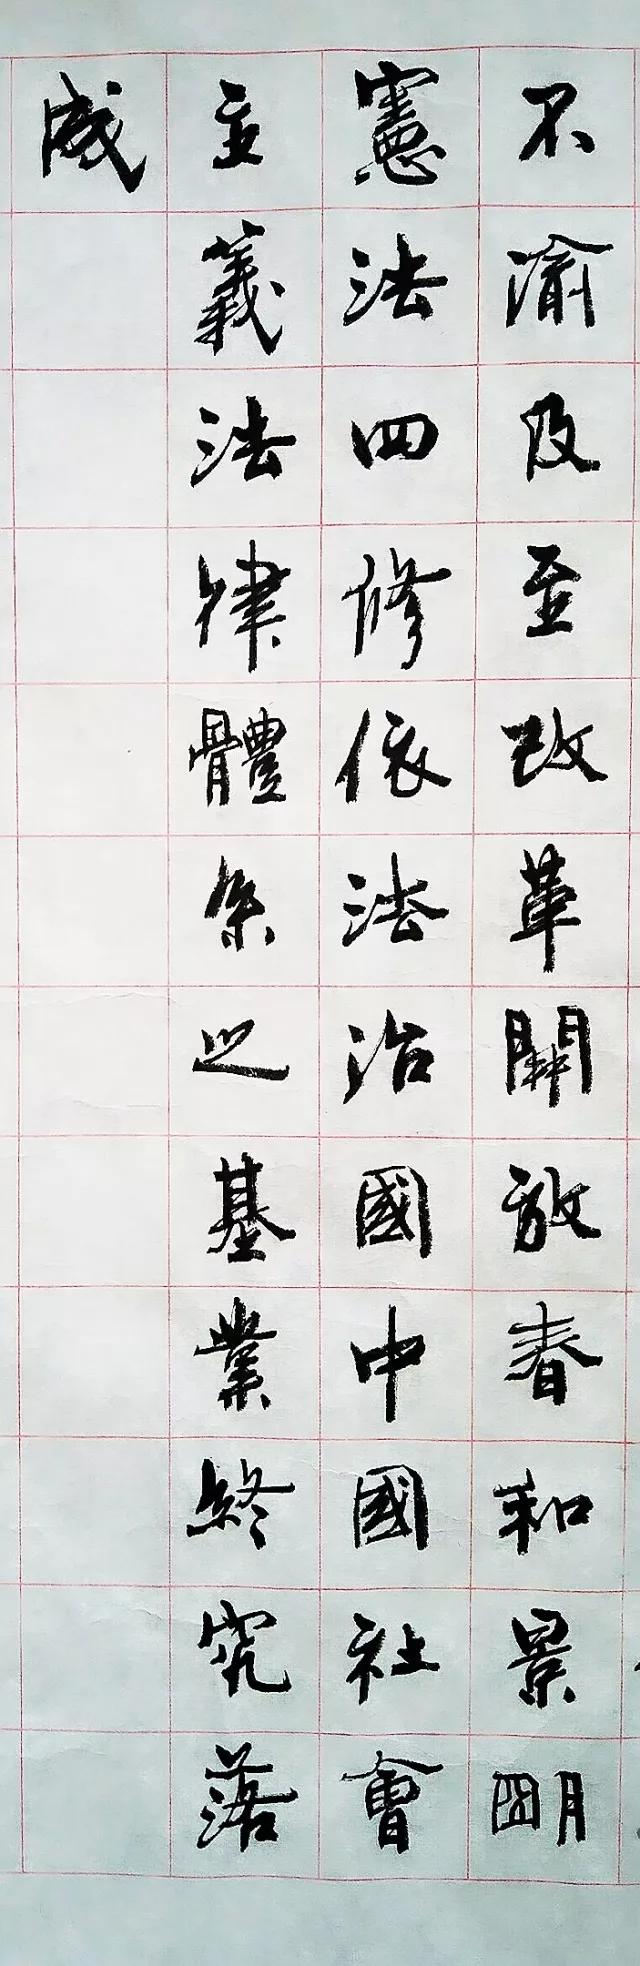 不渝及至改革開放春和景明
憲法四修依法治國中國社會
主義法律體系之基業終究落
成